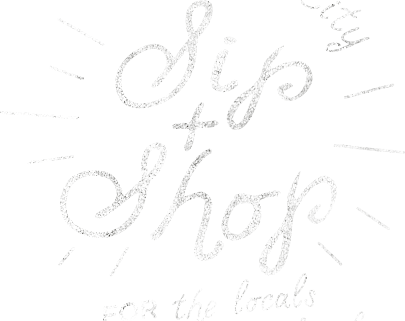 Sip
+
Shop
FOR the locals